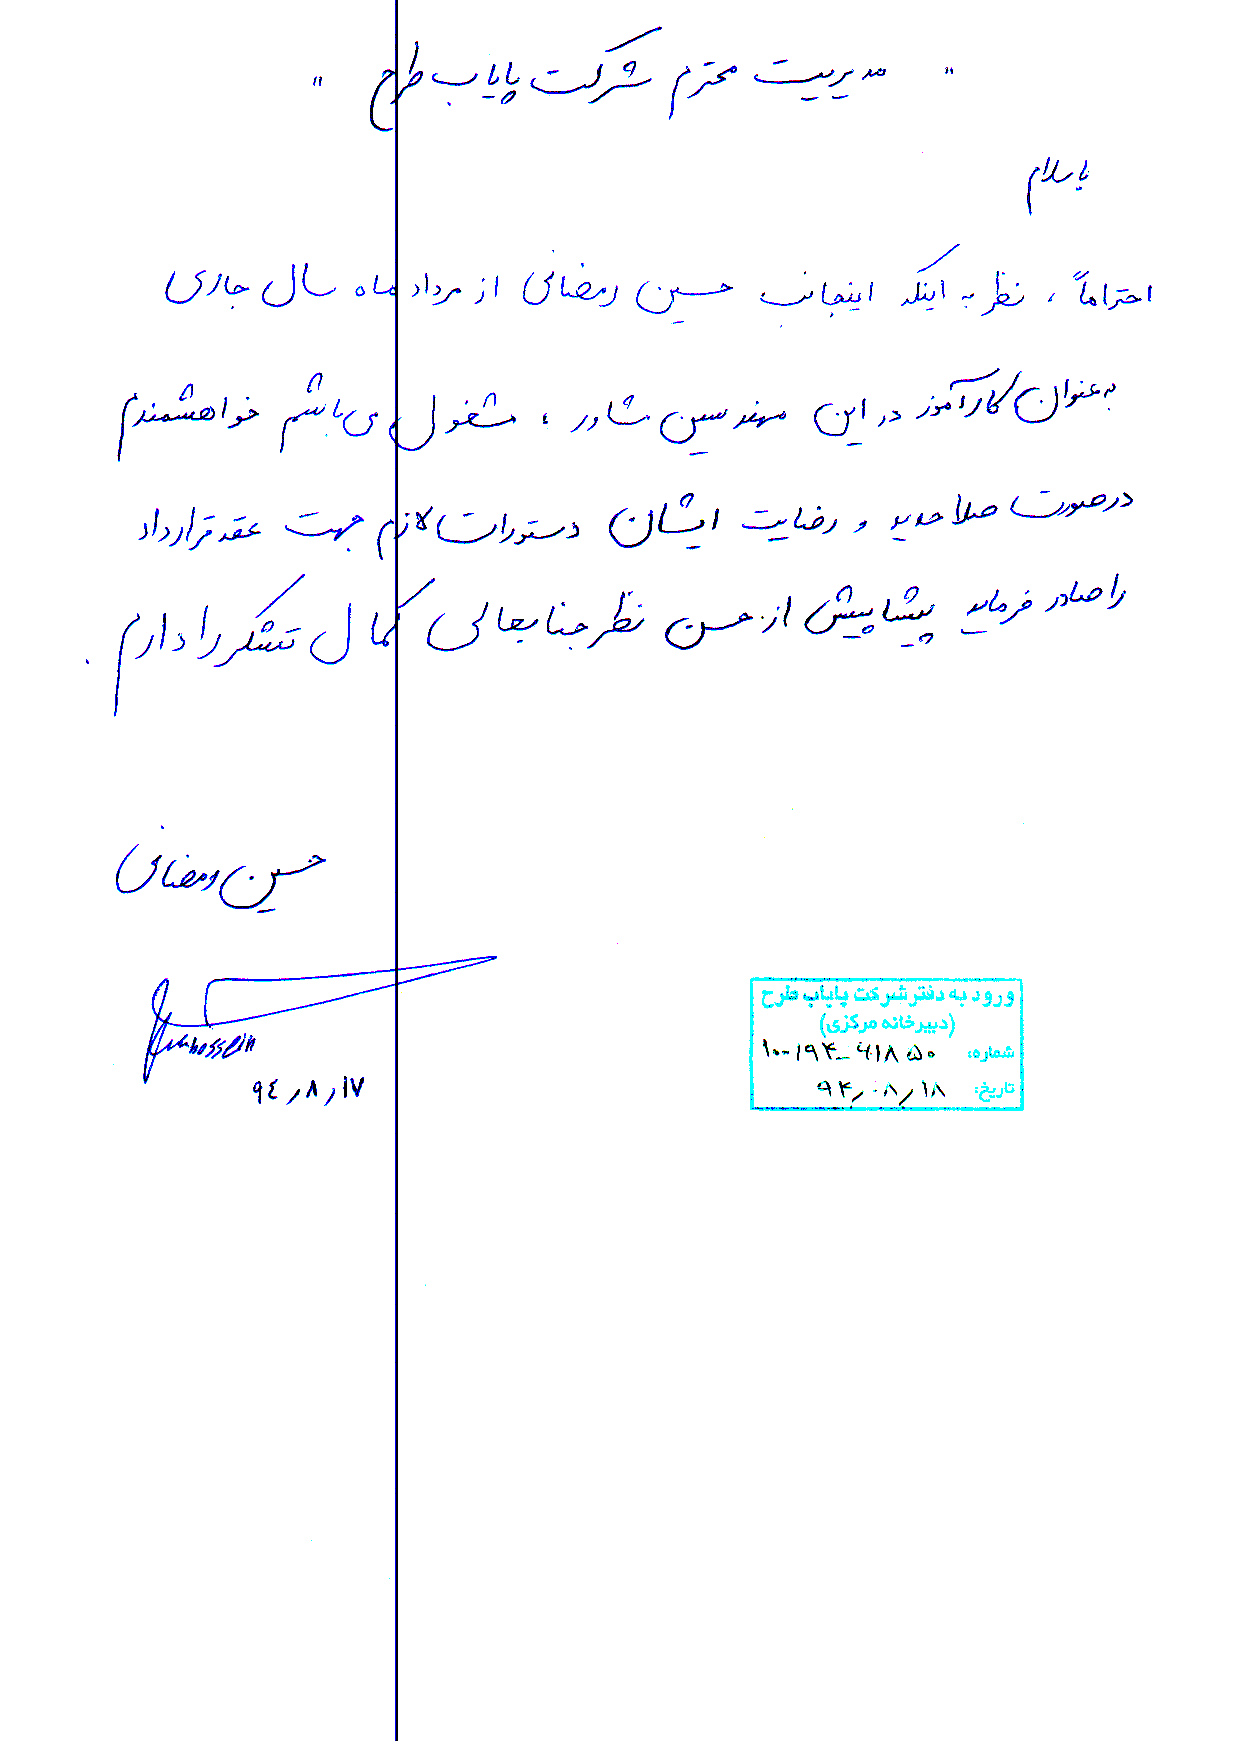 " مدیریت محترم شرکت پایاب طرح "
با سلام
احتراماً ، نظر به اینکه اینجانب حسین رمضانی از مرداد ماه سال جاری
به عنوان کارآموز در این مهندسین مشاور ، مشغول می باشم خواهشمندم
در صورت صلاحدید و رضایت ایشان دستورات لازم جهت عقد قرارداد
را صادر فرمایید پیشاپیش از حسن نظر جنابعالی کمال تشکر را دارم .
حسین رمضانی
hossein
۹٤/۸/۱۷
ورود به دفتر شرکت پایاب طرح
(دبیرخانه مرکزی)
شماره: ۱۰۰/۹۴-۶۱۸۵۰
تاریخ: ۹۴/۰۸/۱۸